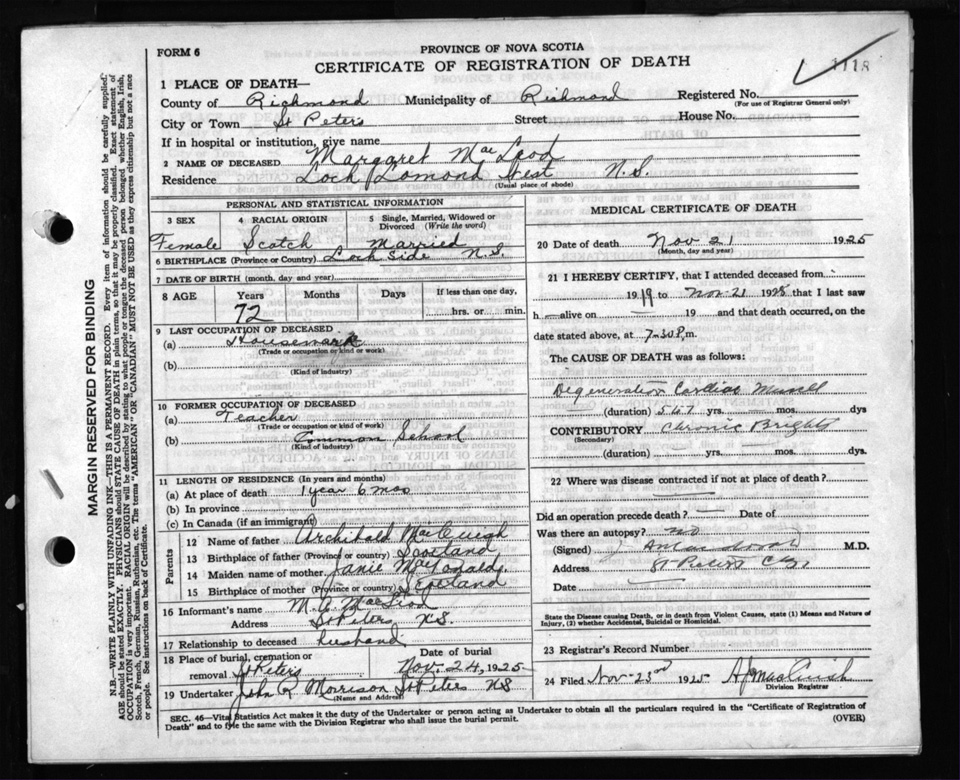 FORM 6
PROVINCE OF NOVA SCOTIA
CERTIFICATE OF REGISTRATION OF DEATH
1118
1 PLACE OF DEATH—
County of Richmond Municipality of Richmond Registered No.
(For use of Registrar General only)
City or Town St Peters Street House No.
If in hospital or institution, give name
2 NAME OF DECEASED Margaret MacLeod
Residence Loch Lomond West N.S.
(Usual place of abode)
PERSONAL AND STATISTICAL INFORMATION
3 SEX 4 RACIAL ORIGIN 5 Single, Married, Widowed or Divorced (Write the word)
Female Scotch Married
6 BIRTHPLACE (Province or Country) Loch Side N.S.
7 DATE OF BIRTH (month, day and year)
8 AGE Years Months Days If less than one day,
72 hrs. or min.
9 LAST OCCUPATION OF DECEASED
(a) Housework
(Trade or occupation or kind or work)
(b)
(Kind of industry)
10 FORMER OCCUPATION OF DECEASED
(a) Teacher
(Trade or occupation or kind or work)
(b) Common School
(Kind of industry)
11 LENGTH OF RESIDENCE (In years and months)
(a) At place of death 1 year 6 mos
(b) In province
(c) In Canada (if an immigrant)
Parents
12 Name of father Archibald
13 Birthplace of father (Province or country) Scotland
14 Maiden name of mother Janie MacDonald
15 Birthplace of mother (Province or country) Scotland
16 Informant's name M. C. MacLeod
Address St Peters N.S.
17 Relationship to deceased husband
18 Place of burial, cremation or removal St Peters Date of burial Nov. 24, 1925
19 Undertaker John R Morrison St Peters NS
(Name and Address)
MEDICAL CERTIFICATE OF DEATH
20 Date of death Nov 21 1925
(Month, day and year)
21 I HEREBY CERTIFY, that I attended deceased from
1919 to Nov 21 1925 that I last saw
h— alive on — 19 and that death occurred, on
date stated above, at 7-30 P.m.
The CAUSE OF DEATH was as follows:
Degeneration Cardiac
(duration) 5 6 7 yrs. mos. dys
CONTRIBUTORY Chronic Brights
(Secondary)
(duration) yrs. mos. dys.
22 Where was disease contracted if not at place of death?
Did an operation precede death? — Date of
Was there an autopsy? no
(Signed) M.D.
Address St Peters
Date
State the Disease causing Death, or in death from Violent Causes, state (1) Means and Nature of Injury, (2) whether Accidental, Suicidal or Homicidal.
23 Registrar's Record Number
24 Filed Nov 23rd 1925
Division Registrar
SEC. 46—Vital Statistics Act makes it the duty of the Undertaker or person acting as Undertaker to obtain all the particulars required in the "Certificate of Registration of
Death" and to file the same with the Division Registrar who shall issue the burial permit. (OVER)
MARGIN RESERVED FOR BINDING
N.B.—WRITE PLAINLY WITH UNFADING INK—THIS IS A PERMANENT RECORD. Every item of information should be carefully supplied.
AGE should be stated EXACTLY. PHYSICIANS should STATE CAUSE OF DEATH in plain terms, so that it may be properly classified. Exact statement of
OCCUPATION is very important. RACIAL ORIGIN will be described by stating to what people or tongue the deceased person belonged whether English, Irish,
Scotch, French, German, Russian, Ruthenian, etc. The terms "AMERICAN" OR "CANADIAN" MUST NOT BE USED as they express citizenship but not a race
or people. See instructions on back of Certificate.